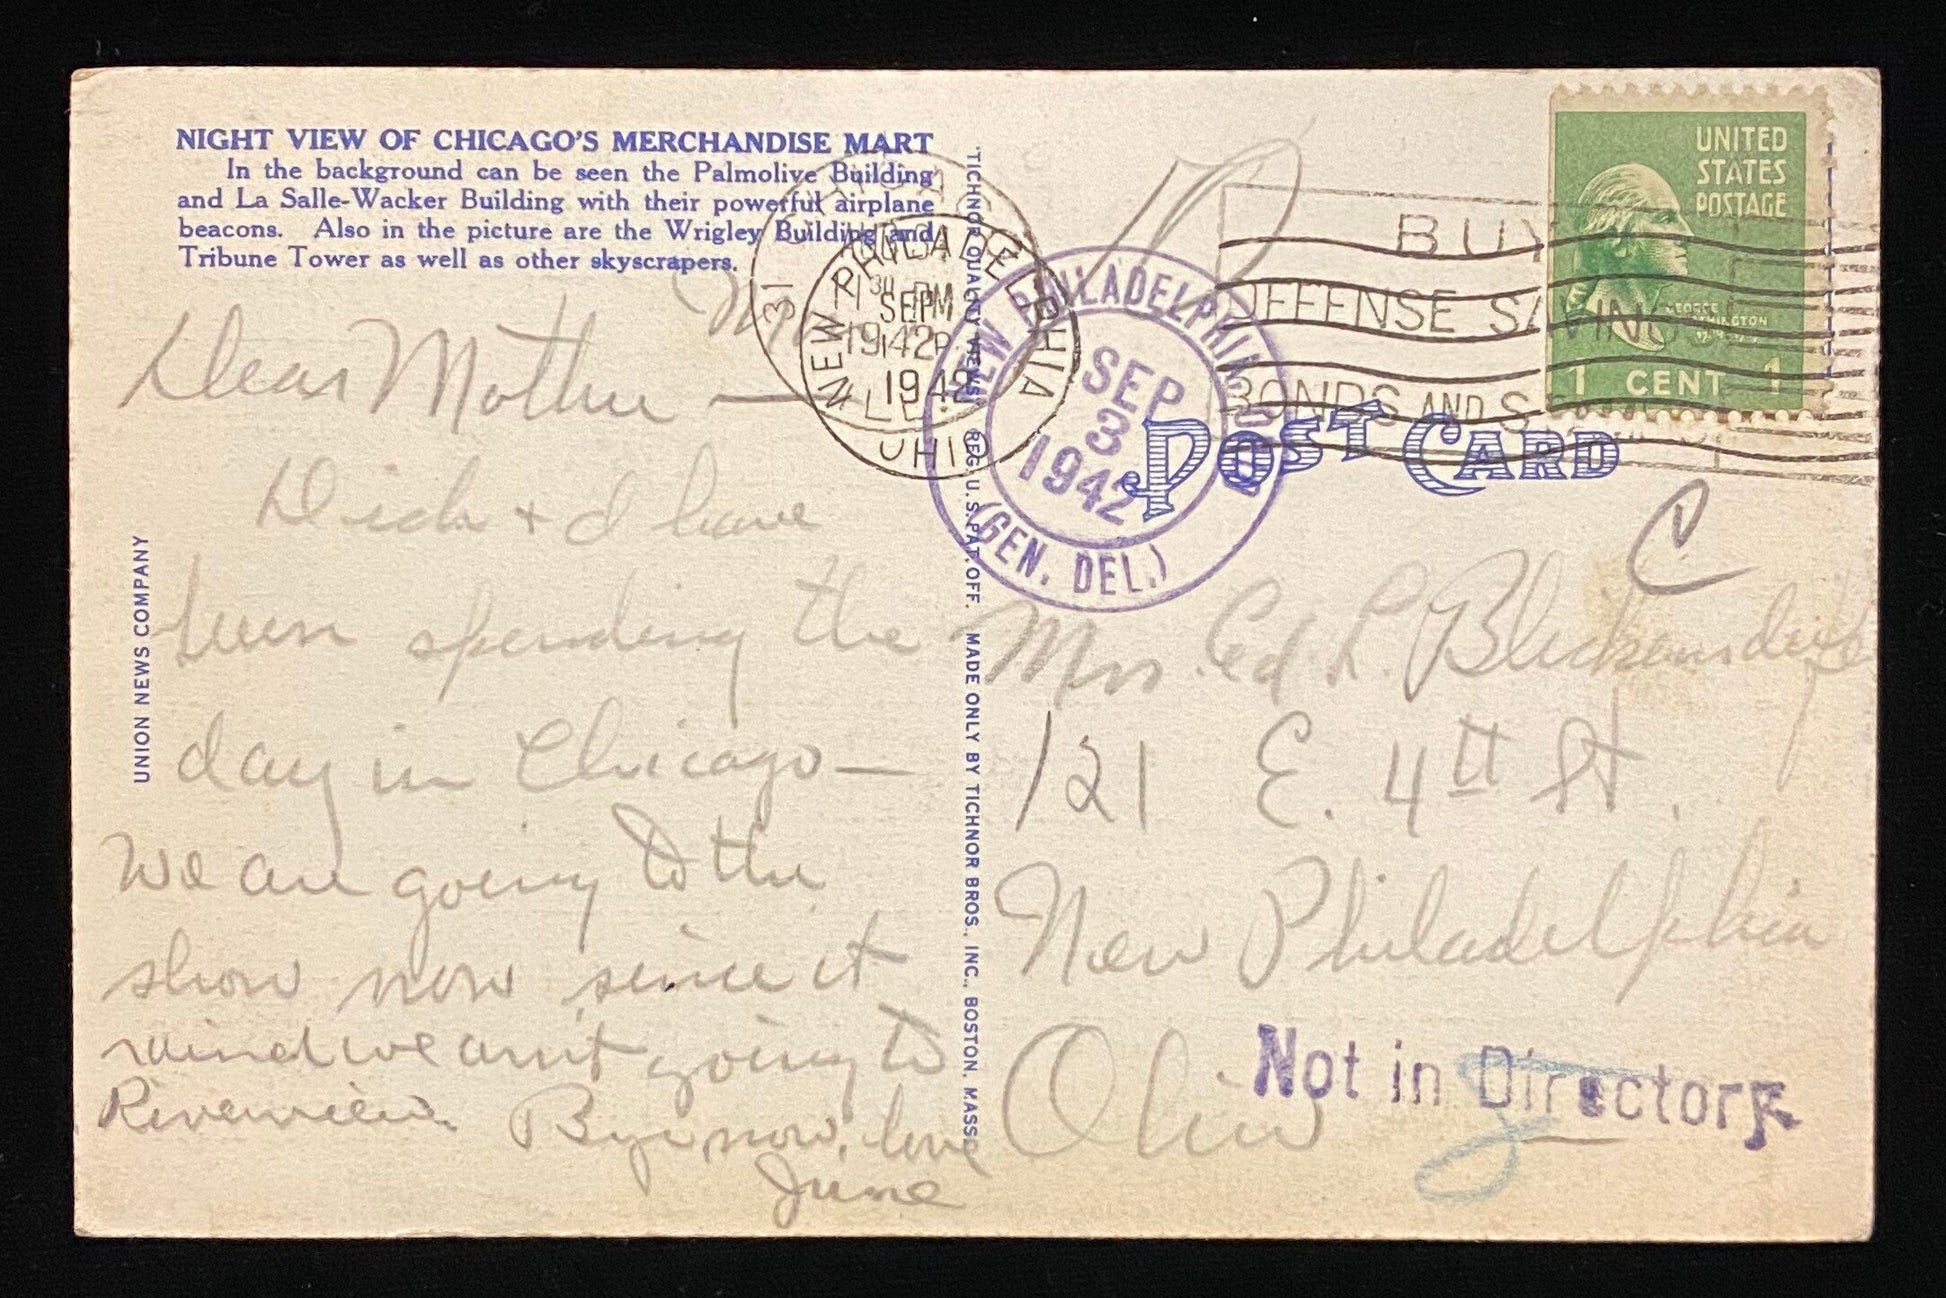 NIGHT VIEW OF CHICAGO'S MERCHANDISE MART
In the background can be seen the Palmolive Building
and La Salle-Wacker Building with their powerful airplane
beacons. Also in the picture are the Wrigley Building and
Tribune Tower as well as other skyscrapers.
Dear Mother —
Dick + I have
been spending the
day in Chicago —
We are going to the
show now since it
rained we aren't going to
Riverview. Bye now, love
June
UNION NEWS COMPANY
TICHNOR QUALITY VIEWS REG. U. S. PAT. OFF. MADE ONLY BY TICHNOR BROS., INC., BOSTON, MASS.
NEW PHILADELPHIA
SEP
1942
OHIO
NEW PHILADELPHIA, OHIO
SEP
3
1942
(GEN. DEL.)
BUY
DEFENSE SAVINGS
BONDS AND
UNITED
STATES
POSTAGE
GEORGE
WASHINGTON
1 CENT 1
POST CARD
C
Mrs. Ed. L. Blickensderfer
121 E. 4th St.
New Philadelphia
Ohio
Not in Directory